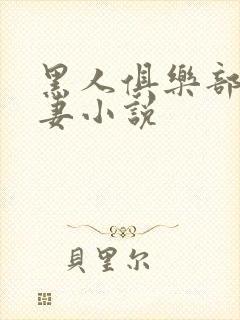 黑人俱樂部
妻小說
貝里尔